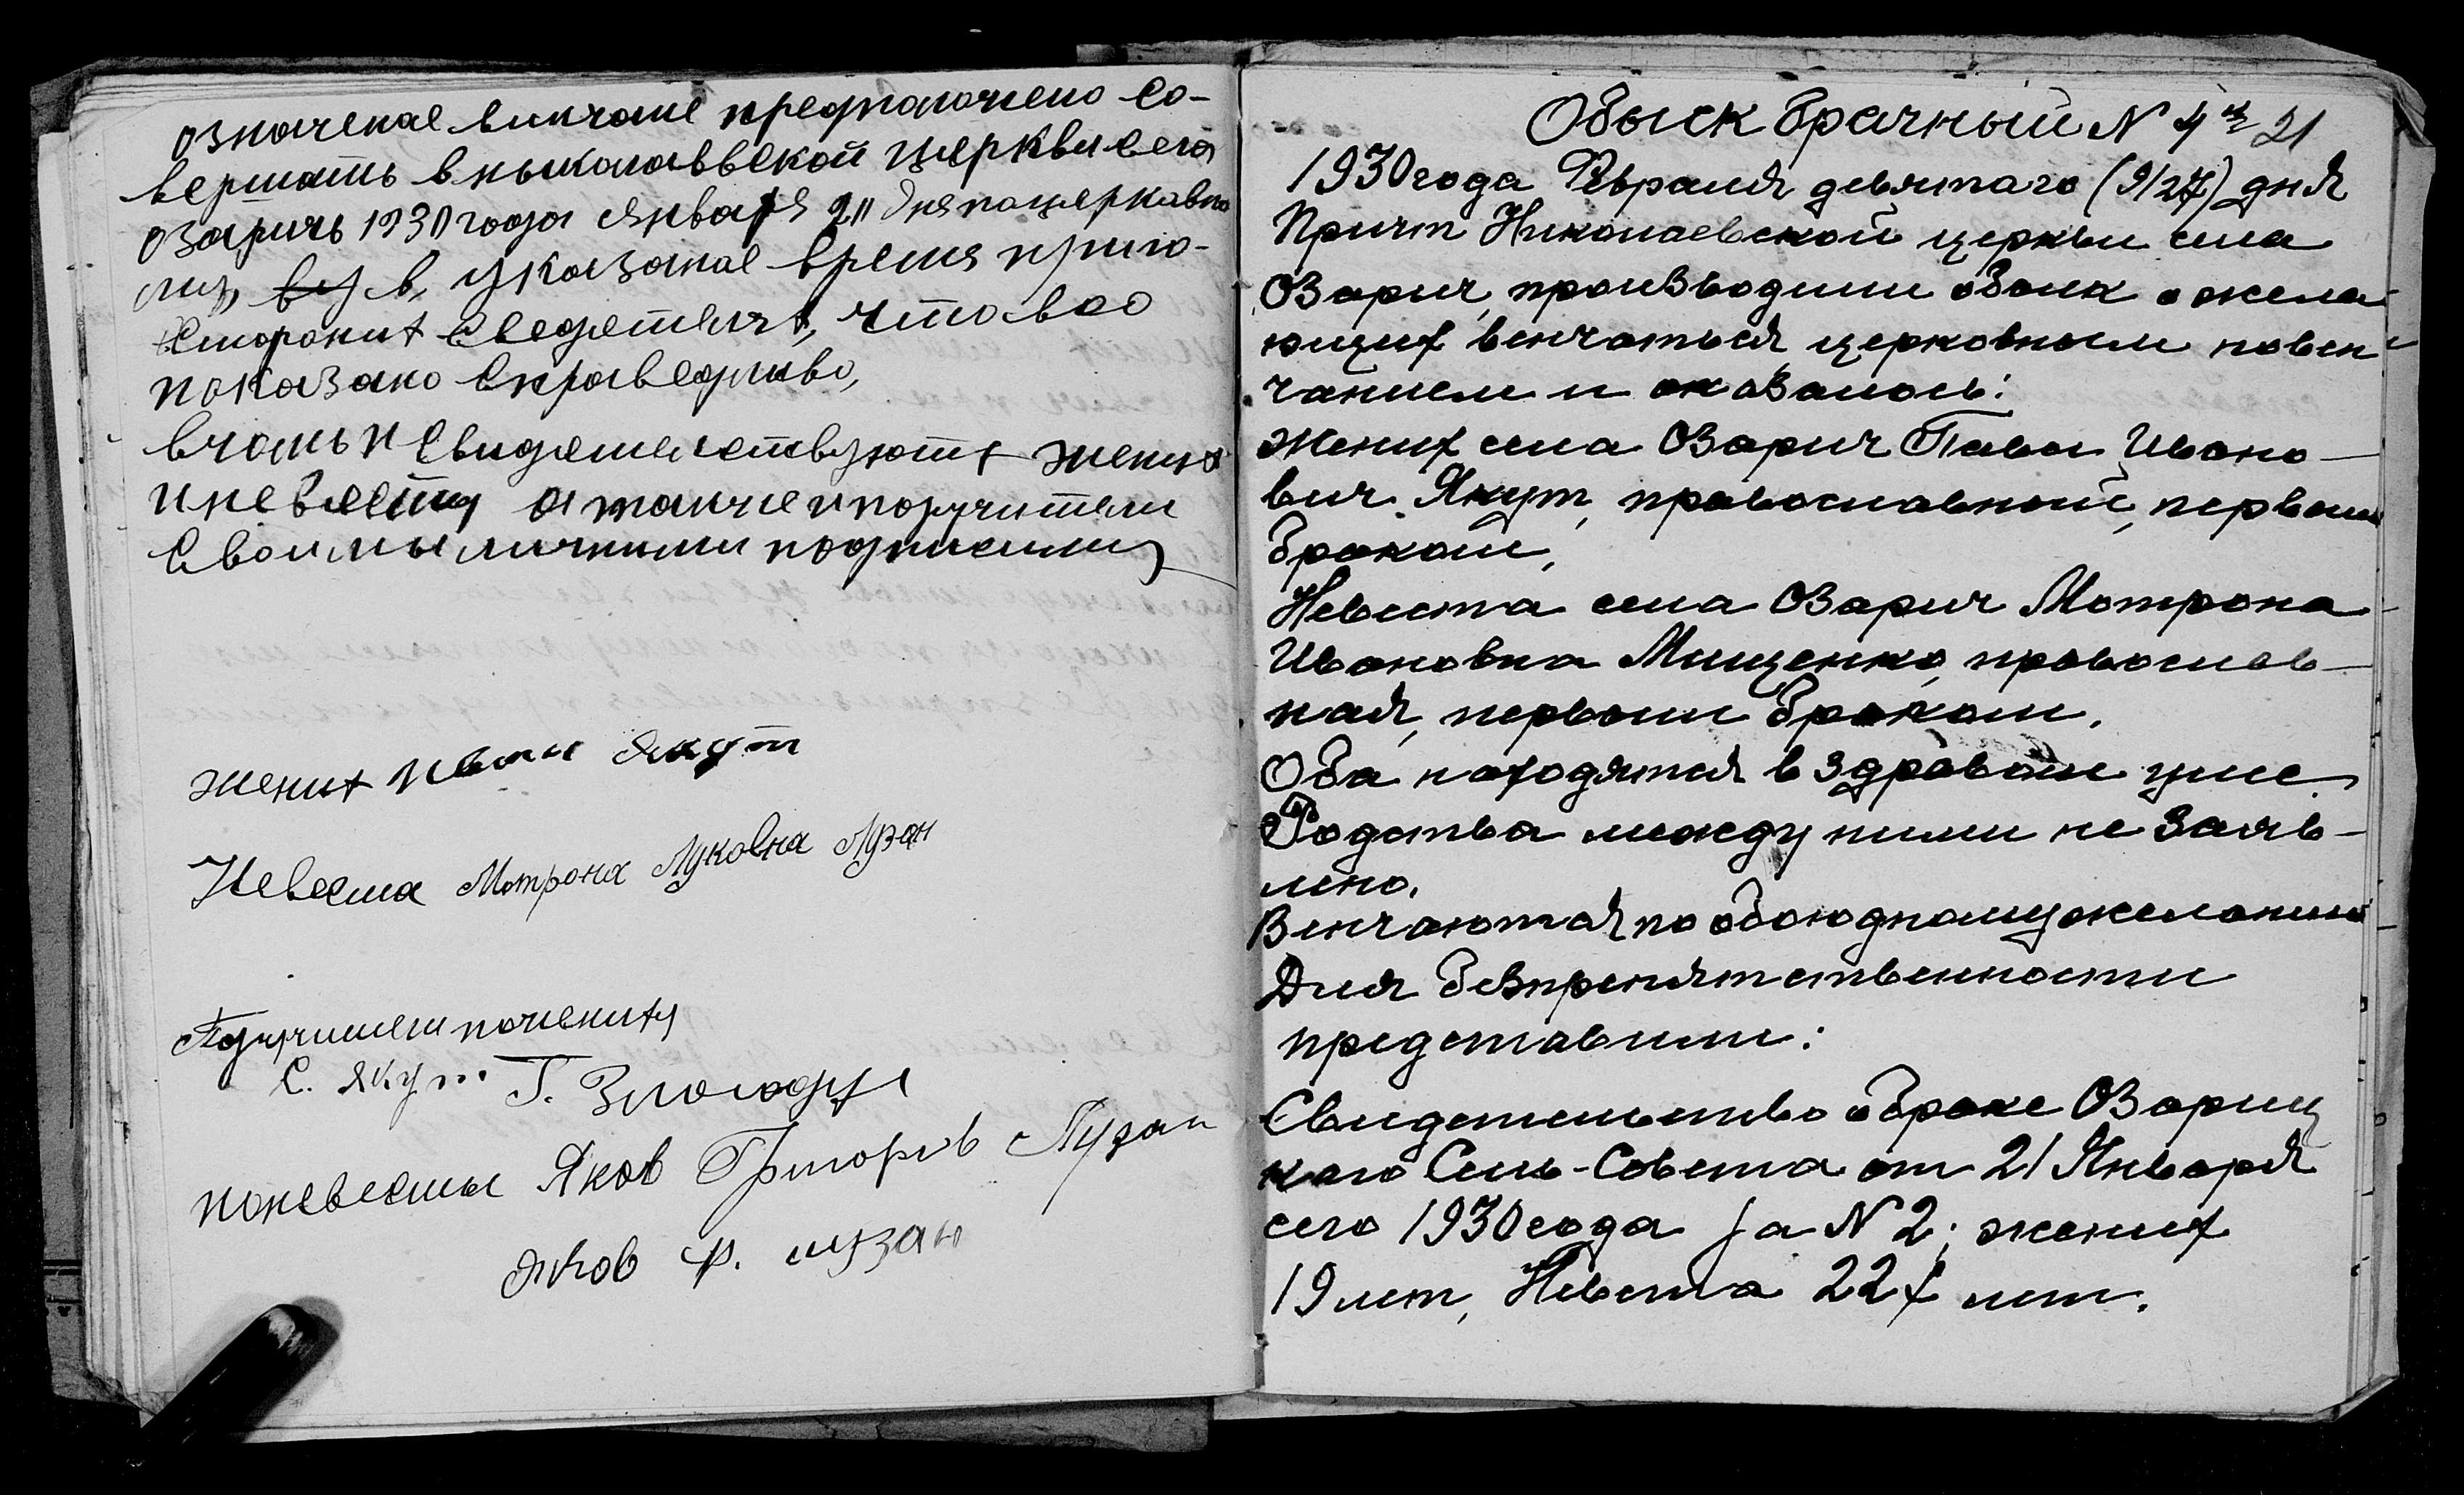 означеное винчаие предположено со-
вершать в николаввской церкви села
Озаричь 1930 года января 2 дня по церкавно
в указаное время приго-
что все
показано справедливо,
в чомь и свидетелствуют жених
и невеста а также и поручители
Своимы личними подписими
жених Иван Якут
Невеста Мотрона Луковна Лузан
Поручители по жениху
С. Якут Г.
по невесты Яков Григорів Лузан
Яков Гр. Лузан
Обыск брачный N 4й 21
1930 года Февраля девятаго (9/27) дня
Причт Николаевской церкви села
Озарич, производили обыск о жела
ющих венчаться церковным повен
чанием и оказалось:
Жених села Озарич Павел Ивано
вич Якут, православный, первым
браком,
Невеста села Озарич Мотрона
Ивановна Мищенко, православ
ная, первым браком.
Оба находятся в здравом уме
Родства между ними не заяв-
лено.
Венчаются по обоюдному желанию
Для безпрепятственности
представили:
Свидетельство о браке Озариц
каго Сель-Совета от 21 Января
сего 1930 года за N 2; жених
19 лет, Невеста 22х лет.